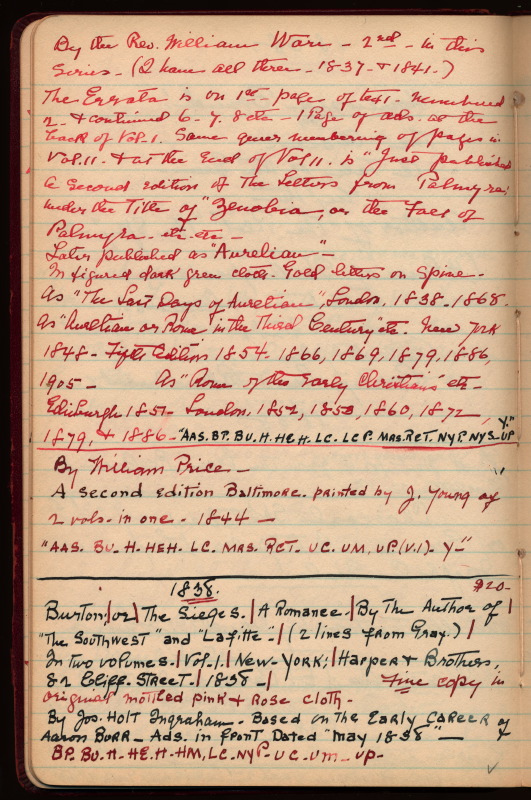 By the Rev. William Ware - 2nd - in this
Series - (I have all three - 1837 - & 1841.)
The Errata is on 1st page of text. numbered
2 - & continued 6 - 7. 8 etc - 1 Page of ads. at the
back of Vol. 1. Same queer numbering of pages in
Vol. 11. & at the End of Vol 11. is "Just published
a second edition of the Letters from Palmyra,
under the Title of "Zenobia, or the Fall of
Palmyra - etc. etc -
Later published as "Aurelian" -
In figured dark green cloth. Gold letters on Spine.
As "The Last Days of Aurelian" London, 1838 - 1868.
As "Aurelian or Rome in the Third Century" etc. New York
1848 - Fifth Edition 1854 - 1866, 1869, 1879, 1886,
1905 - As "Rome & the Early Christians" etc -
Edinburgh 1851 - London, 1852, 1853, 1860, 1872,
1879, & 1886 - "AAS. BP. BU. H. HEH. LC. LCP. MRS. RCT. NYP. NYS - UP
Y."
By William Price -
A second edition Baltimore. printed by J. Young of
2 vols. in one - 1844 -
"AAS. BU. H. HEH. LC. MRS. RCT. UC. UM. UP. (V.1). Y-"
1838. $20-
Burton; | or | The Sieges. | A Romance. | By The Author of |
"The Southwest" and "Lafitte". | (2 lines from Gray.) |
In two volumes. | Vol. 1. | New-York; | Harper & Brothers,
82 Cliff-Street. | 1838 - | Fine copy in
original mottled pink & Rose cloth.
By Jos. Holt Ingraham. Based on the Early Career of
Aaron Burr - Ads. in front Dated "May 1838" -
BP. BU. H. HEH. HM. LC. NYP. UC. UM. UP -